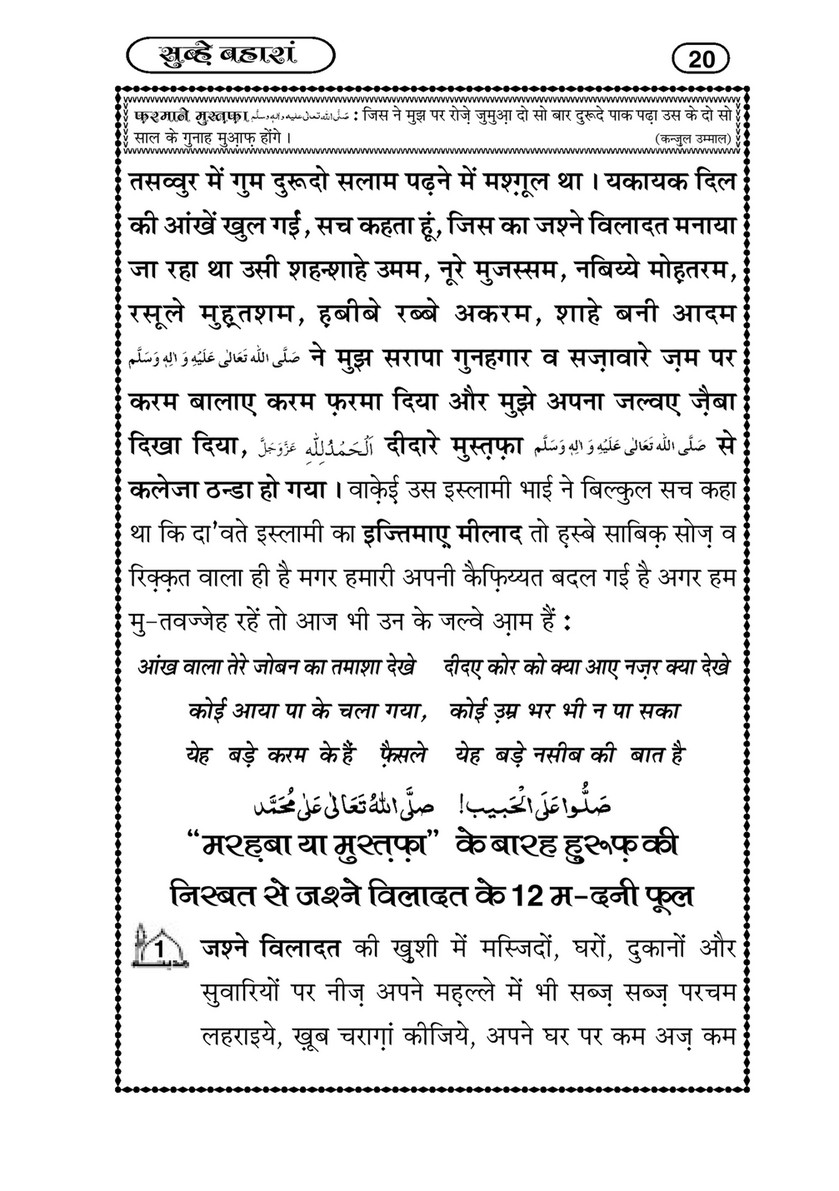 सुब्हे बहारां
20
फरमाने मुस्त़फ़ा صَلَّى اللّٰه تعالٰى عليه واٰلهٖ وسلَّم : जिस ने मुझ पर रोज़े जुमुआ़ दो सो बार दुरूदे पाक पढ़ा उस के दो सो
साल के गुनाह मुआ़फ़ होंगे । (कन्जुल उम्माल)
तसव्वुर में गुम दुरूदो सलाम पढ़ने में मश्ग़ूल था । यकायक दिल
की आंखें खुल गईं, सच कहता हूं, जिस का जश्ने विलादत मनाया
जा रहा था उसी शहन्शाहे उमम, नूरे मुजस्सम, नबिय्ये मोह़तरम,
रसूले मुह़्तशम, ह़बीबे रब्बे अकरम, शाहे बनी आदम
صَلَّى اللّٰه تَعَالٰى عَلَيْهِ وَ اٰلِهٖ وَسَلَّم ने मुझ सरापा गुनहगार व सज़ावारे ज़म पर
करम बालाए करम फ़रमा दिया और मुझे अपना जल्वए ज़ैबा
दिखा दिया, اَلْحَمْدُلِلّٰهِ عَزَّوَجَلَّ दीदारे मुस्त़फ़ा صَلَّى اللّٰه تَعَالٰى عَلَيْهِ وَ اٰلِهٖ وَسَلَّم से
कलेजा ठन्डा हो गया । वाक़ेई उस इस्लामी भाई ने बिल्कुल सच कहा
था कि दा'वते इस्लामी का इज्तिमाए़ मीलाद तो ह़स्बे साबिक़ सोज़ व
रिक़्क़त वाला ही है मगर हमारी अपनी कैफ़िय्यत बदल गई है अगर हम
मु-तवज्जेह रहें तो आज भी उन के जल्वे आ़म हैं :
आंख वाला तेरे जोबन का तमाशा देखे दीदए कोर को क्या आए नज़र क्या देखे
कोई आया पा के चला गया, कोई उ़म्र भर भी न पा सका
येह बड़े करम के हैं फ़ैसले येह बड़े नसीब की बात है
صَلُّوا عَلَى الْحَبِيب! صلَّى اللّٰهُ تَعَالٰى عَلٰى مُحَمَّد
“मरह़बा या मुस्त़फ़ा” के बारह हुरूफ़ की
निस्बत से जश्ने विलादत के 12 म-दनी फूल
1 जश्ने विलादत की ख़ुशी में मस्जिदों, घरों, दुकानों और
सुवारियों पर नीज़ अपने मह़ल्ले में भी सब्ज़ सब्ज़ परचम
लहराइये, ख़ूब चराग़ां कीजिये, अपने घर पर कम अज़ कम